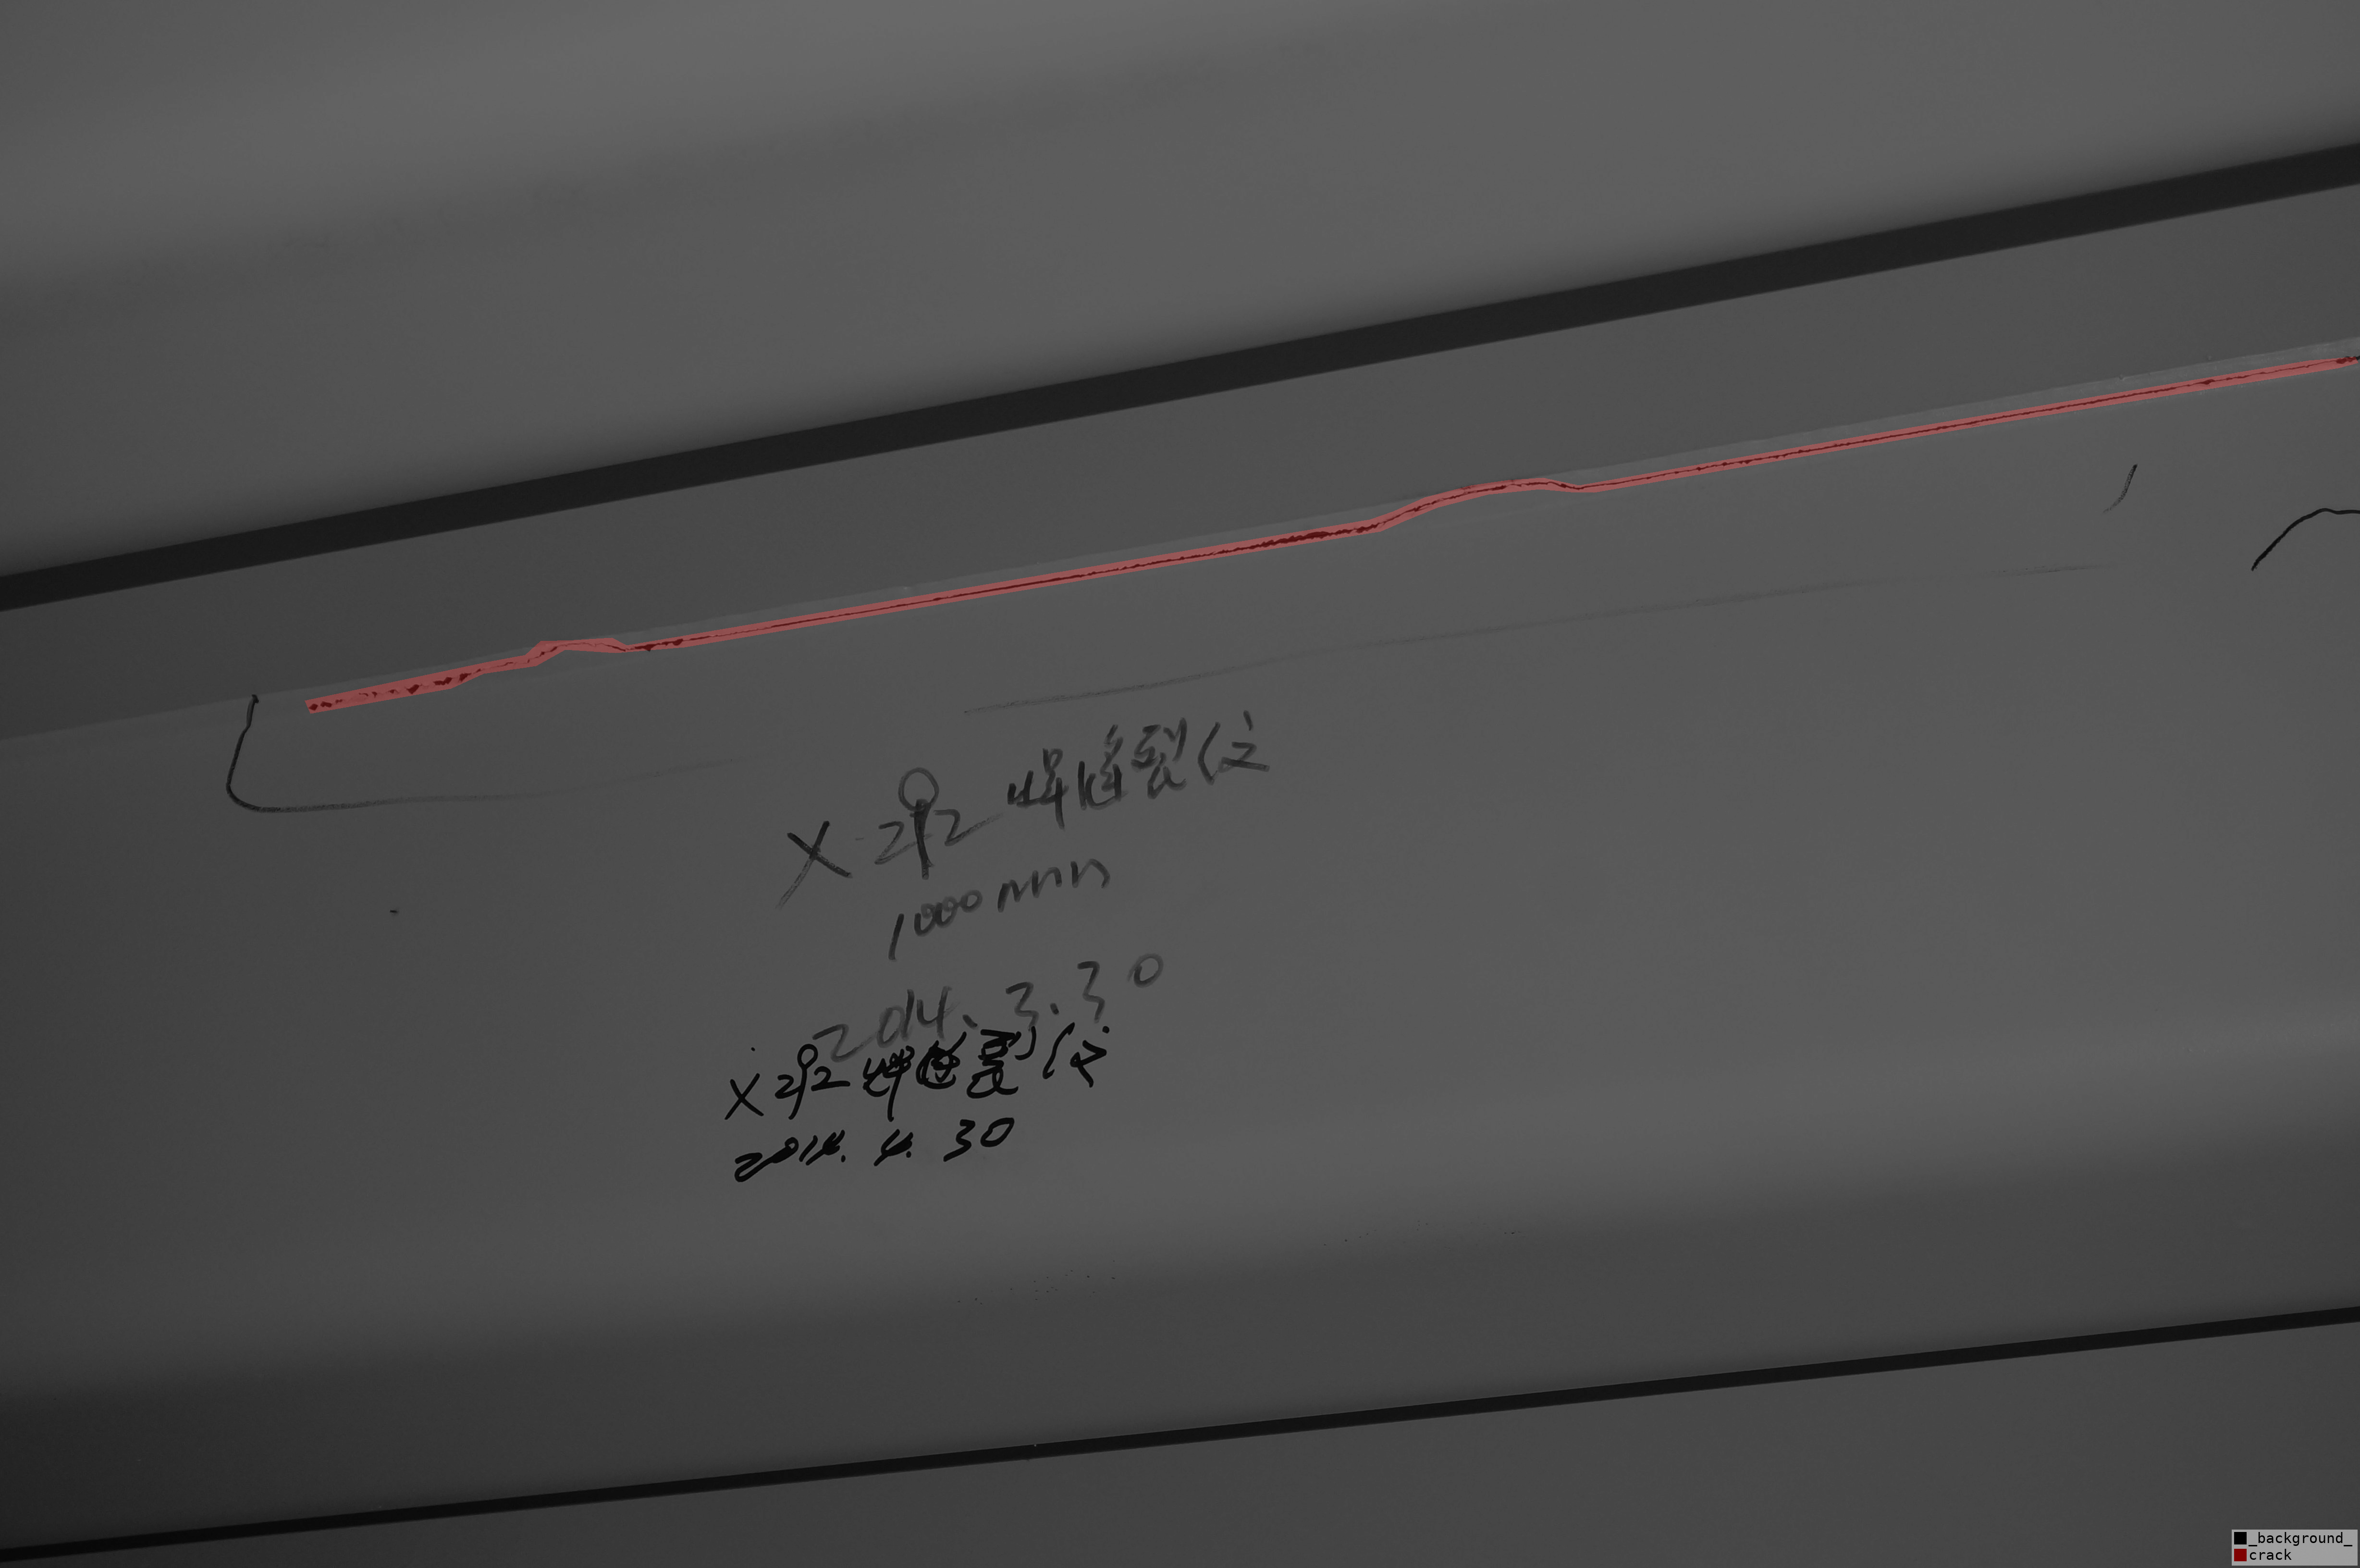 X-292 焊缝裂(
1000mm
2014.3.30
X292
2014.4.30
_background_
crack